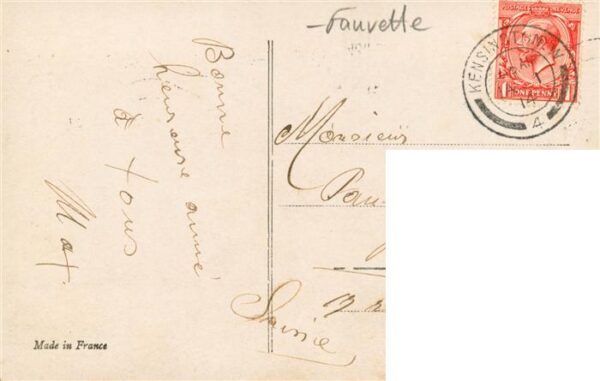 Fauvette
Bonne
heureuse année
à tous
Max.
Made in France
Monsieur
Suisse
POSTAGE REVENUE
ONE PENNY
KENSINGTON W
14
4